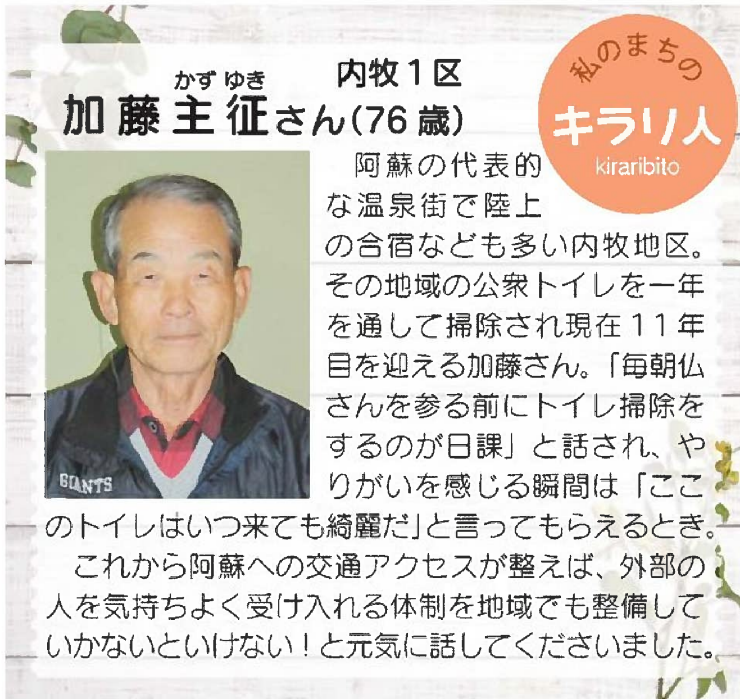 私のまちの
キラリ人
kiraribito
内牧1区
かず ゆき
加藤主征さん(76歳)
阿蘇の代表的
な温泉街で陸上
の合宿なども多い内牧地区。
その地域の公衆トイレを一年
を通して掃除され現在11年
目を迎える加藤さん。「毎朝仏
さんを参る前にトイレ掃除を
するのが日課」と話され、や
りがいを感じる瞬間は「ここ
のトイレはいつ来ても綺麗だ」と言ってもらえるとき。
これから阿蘇への交通アクセスが整えば、外部の
人を気持ちよく受け入れる体制を地域でも整備して
いかないといけない！と元気に話してくださいました。
GIANTS